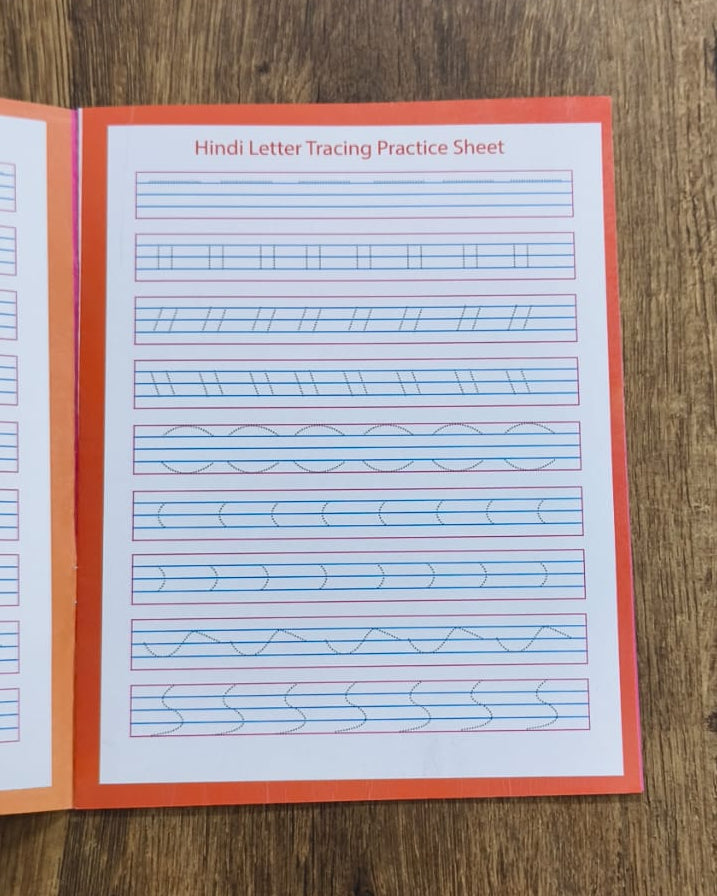 Hindi Letter Tracing Practice Sheet